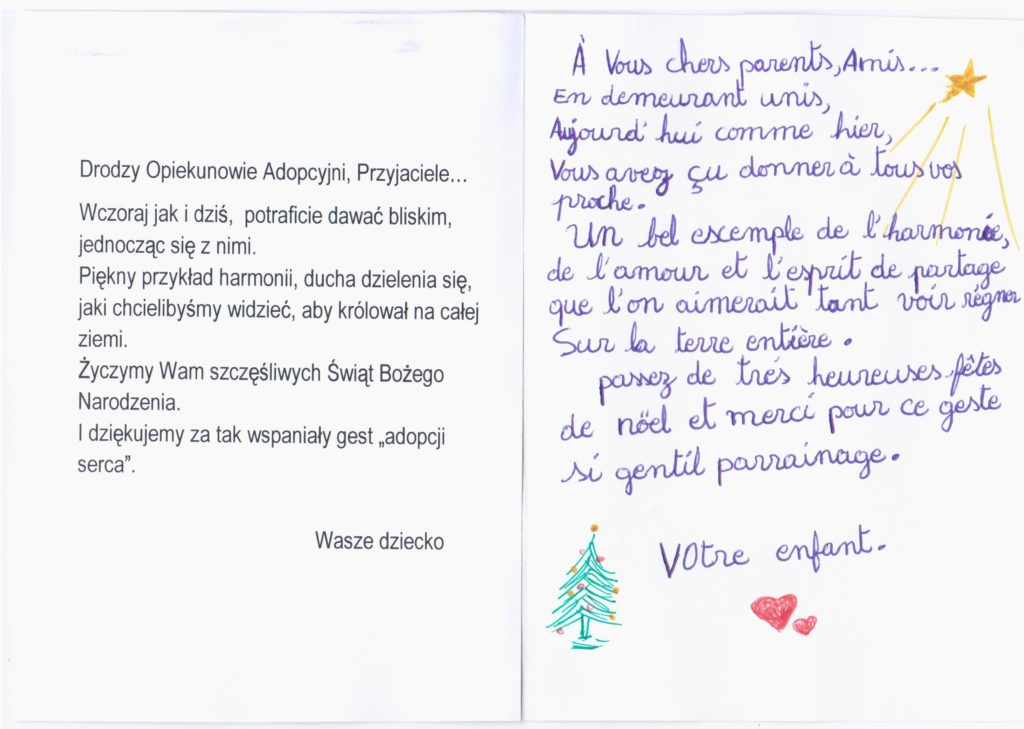 Drodzy Opiekunowie Adopcyjni, Przyjaciele...
Wczoraj jak i dziś, potraficie dawać bliskim,
jednocząc się z nimi.
Piękny przykład harmonii, ducha dzielenia się,
jaki chcielibyśmy widzieć, aby królował na całej
ziemi.
Życzymy Wam szczęśliwych Świąt Bożego
Narodzenia.
I dziękujemy za tak wspaniały gest „adopcji
serca”.
Wasze dziecko
À Vous chers parents, Amis...
En demeurant unis,
Aujourd'hui comme hier,
Vous avez çu donner à tous vos
proche.
Un bel escemple de l'harmonie,
de l'amour et l'esprit de partage
que l'on aimerait tant voir régner
Sur la terre entière.
passez de trés heureuses fêtes
de nöel et merci pour ce geste
si gentil parrainage.
VOtre enfant.